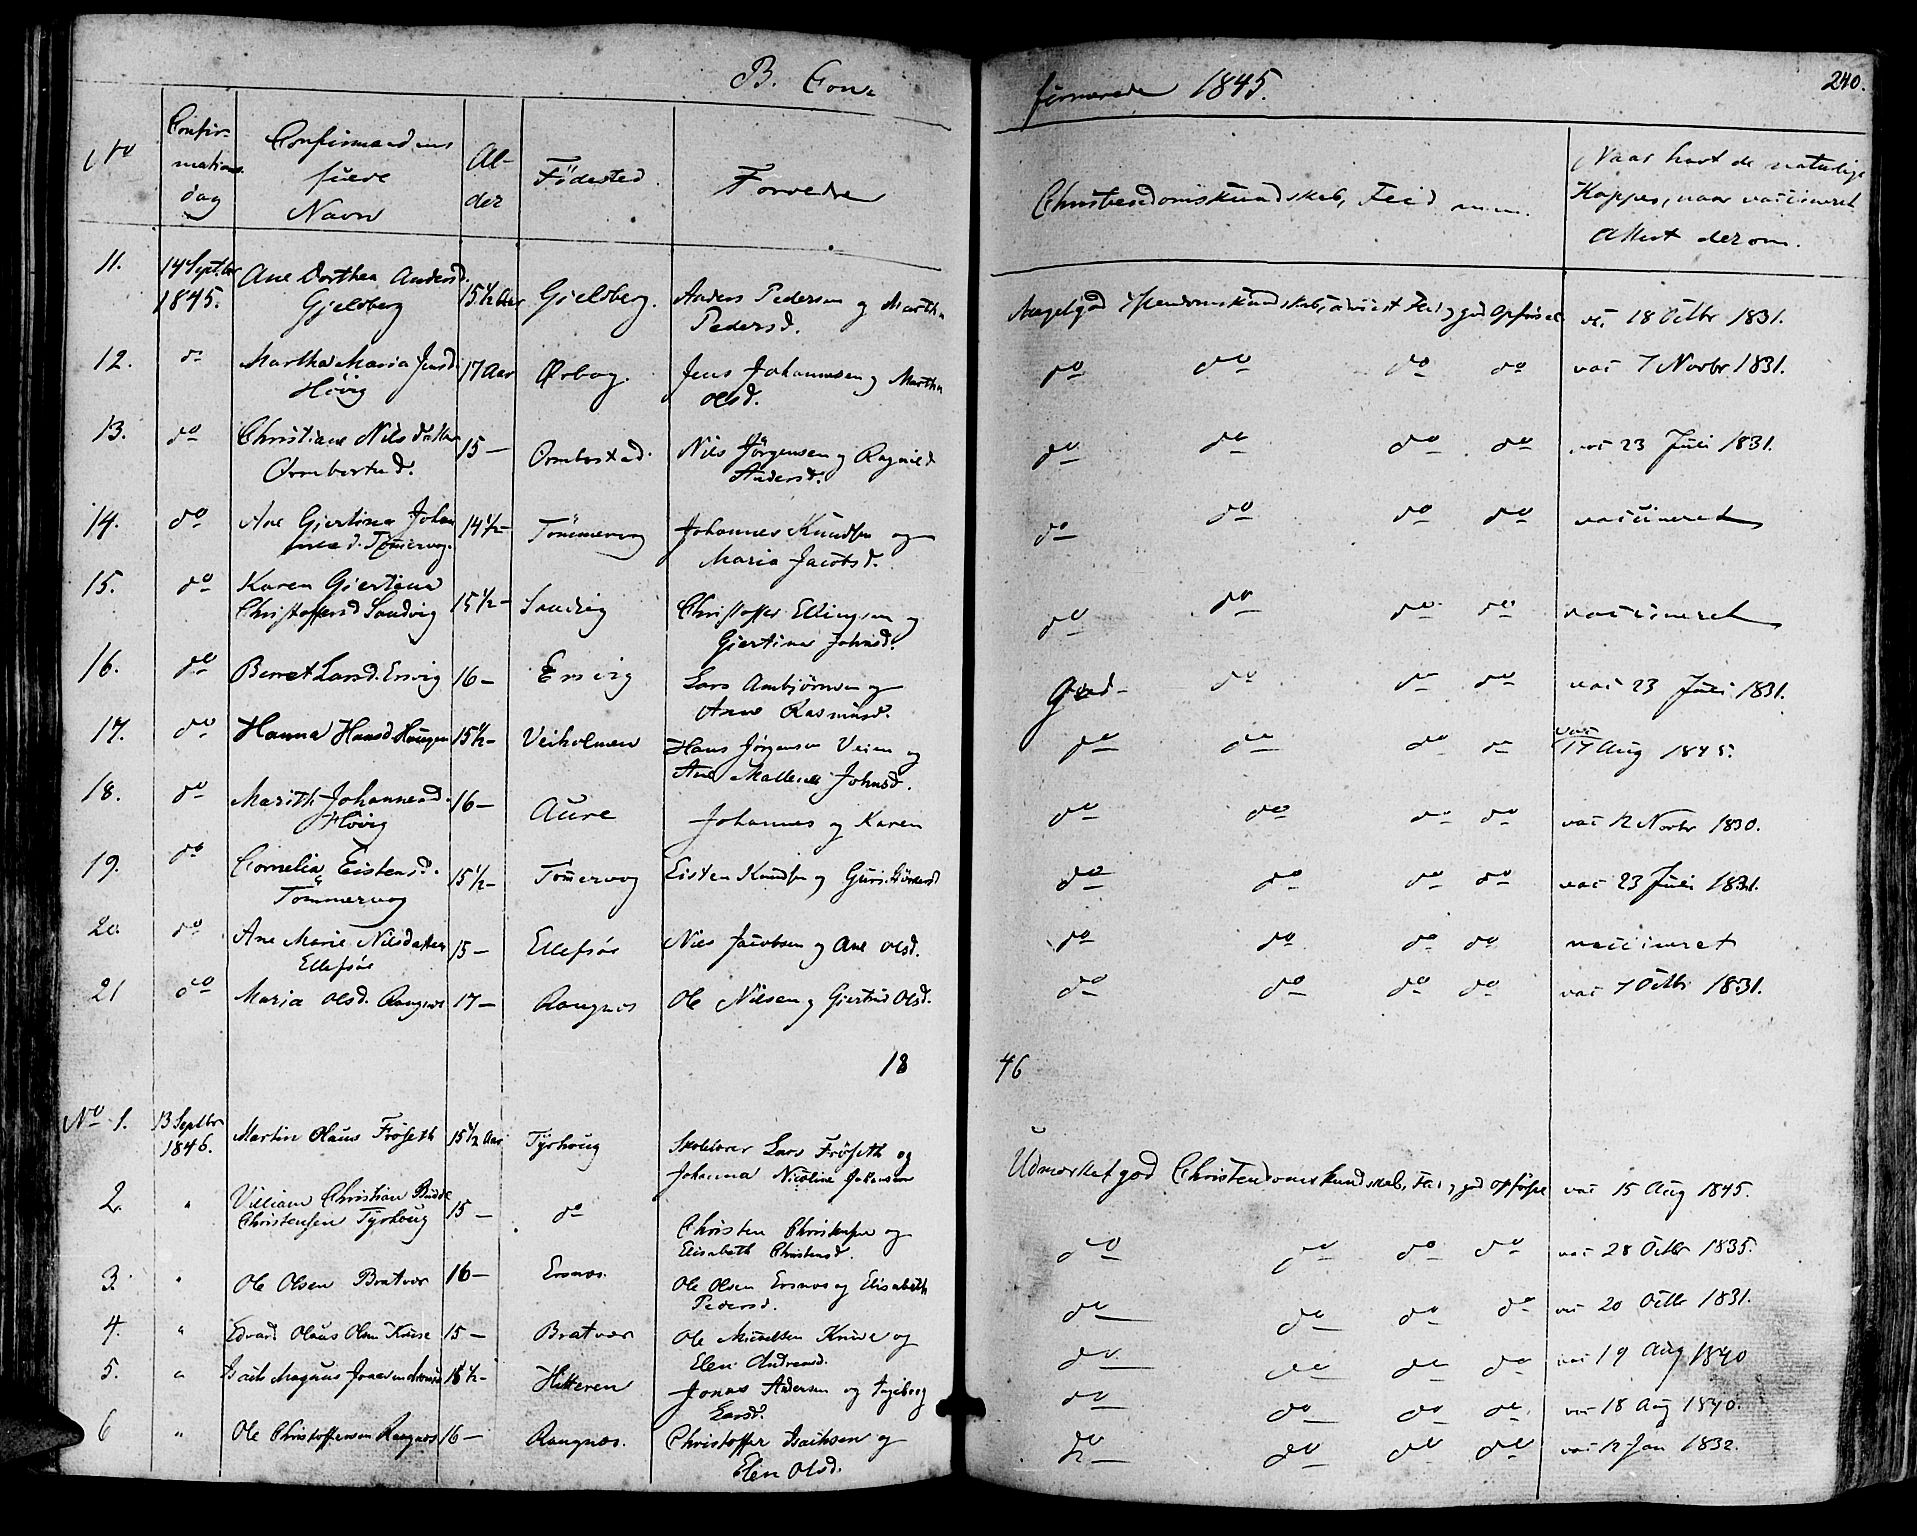 B. Con-
firmerede 1845.
240.
No
Confir-
mations
dag
Confirmandens
fulde
Navn
Al-
der
Födested.
Forældre
Christendomskundskab, Flid m.m.
Naar havt de naturlige
Kopper, naar vaccineret
Attest derom.
11. 14 Septbr 1845. Ane Dorthea Andersd. Gjelsberg 15 1/2 Aar Gjelsberg. Anders Pedersen og Martha Pedersd. Meget god Christendomskundskab, udviist Flid, god Opførsel v. 18 Octbr 1831.
12. do Martha Maria Jensd. Hövig 17 Aar Ørbog. Jens Johannesen og Martha Olsd. do do do do vac 7 Novbr 1831.
13. do Christiane Nilsdatter Ormbostad. 15 — Ormbostad. Nils Jörgensen og Ragnild Andersd. do do do do vac 23 Juli 1831.
14. do Ane Gjertina Johannesd. Tömmervog. 14 1/2 — Tömmervog Johannes Knudsen og Maria Jacobsd. do do do do vaccineret
15. do Karen Gjertina Christoffersd Sandvig 15 1/2 — Sandvig Christoffer Ellingsen og Gjertina Johnsd. do do do do vaccineret
16. do Beret Larsd. Ersvig 16 — Ersvig Lars Ambjörnsen og Ane Rasmusd. God — do do do vac 23 Juli 1831.
17. do Hanna Hansd Haugen 15 1/2 — Veiholmen Hans Jørgensen Veien og Ane Mallene Johnsd. do do do do vac 17 Aug 1845.
18. do Marith Johannesd. Hövig 16 — Aure Johannes og Karen do do do do vac 12 Novbr 1830.
19. do Cornelia Eistensd. Tömmervog 15 1/2 — Tömervog Eisten Knudsen og Guri do do do do vac 23 Juli 1831.
20. do Ane Marie Nilsdatter Ellefsös 15 — Ellefsös Nils Jacobsen og Ane Olsd. do do do do vaccineret
21 do Maria Olsd. Rangnæs 17 — Rangnæs Ole Nilsen og Giertrud Olsd. do do do do vac 7 Octbr 1831.
18 46
No 1. 13 Septbr 1846. Martin Olaus Fröseth 15 1/2 Aar Tyrhoug Skolelærer Lars Fröseth og Johanna Nicoline Johansen Udmærket god Christendomskundskab, Flid, god Opførsel vac 15 Aug 1845.
2. " Villiam Christian Budde Christensen Tyrhoug 15 — do Christen Christensen og Elisabeth Christensd. do do do do vac 28 Octbr 1835.
3. " Ole Olsen Bratvær 16 — Ersnæs. Ole Olsen Ersnæs og Elisabeth Pedersd. do do do do vac 20 Octbr 1831.
4. " Edvard Olaus Olsen 15 — Bratvær Ole og Elen Andreasd. do do do do vac 19 Aug 1840
5. " Isach Magnus Jonassen 18 1/2 — Hitteren Jonas Andersen og Ingeborg Larsd. do do do do vac 18 Aug 1840.
6 " Ole Christoffersen Rangnæs 16 — Rangnæs. Christoffer Isachsen og Elen Olsd. do do do do vac 12 Jan 1832.